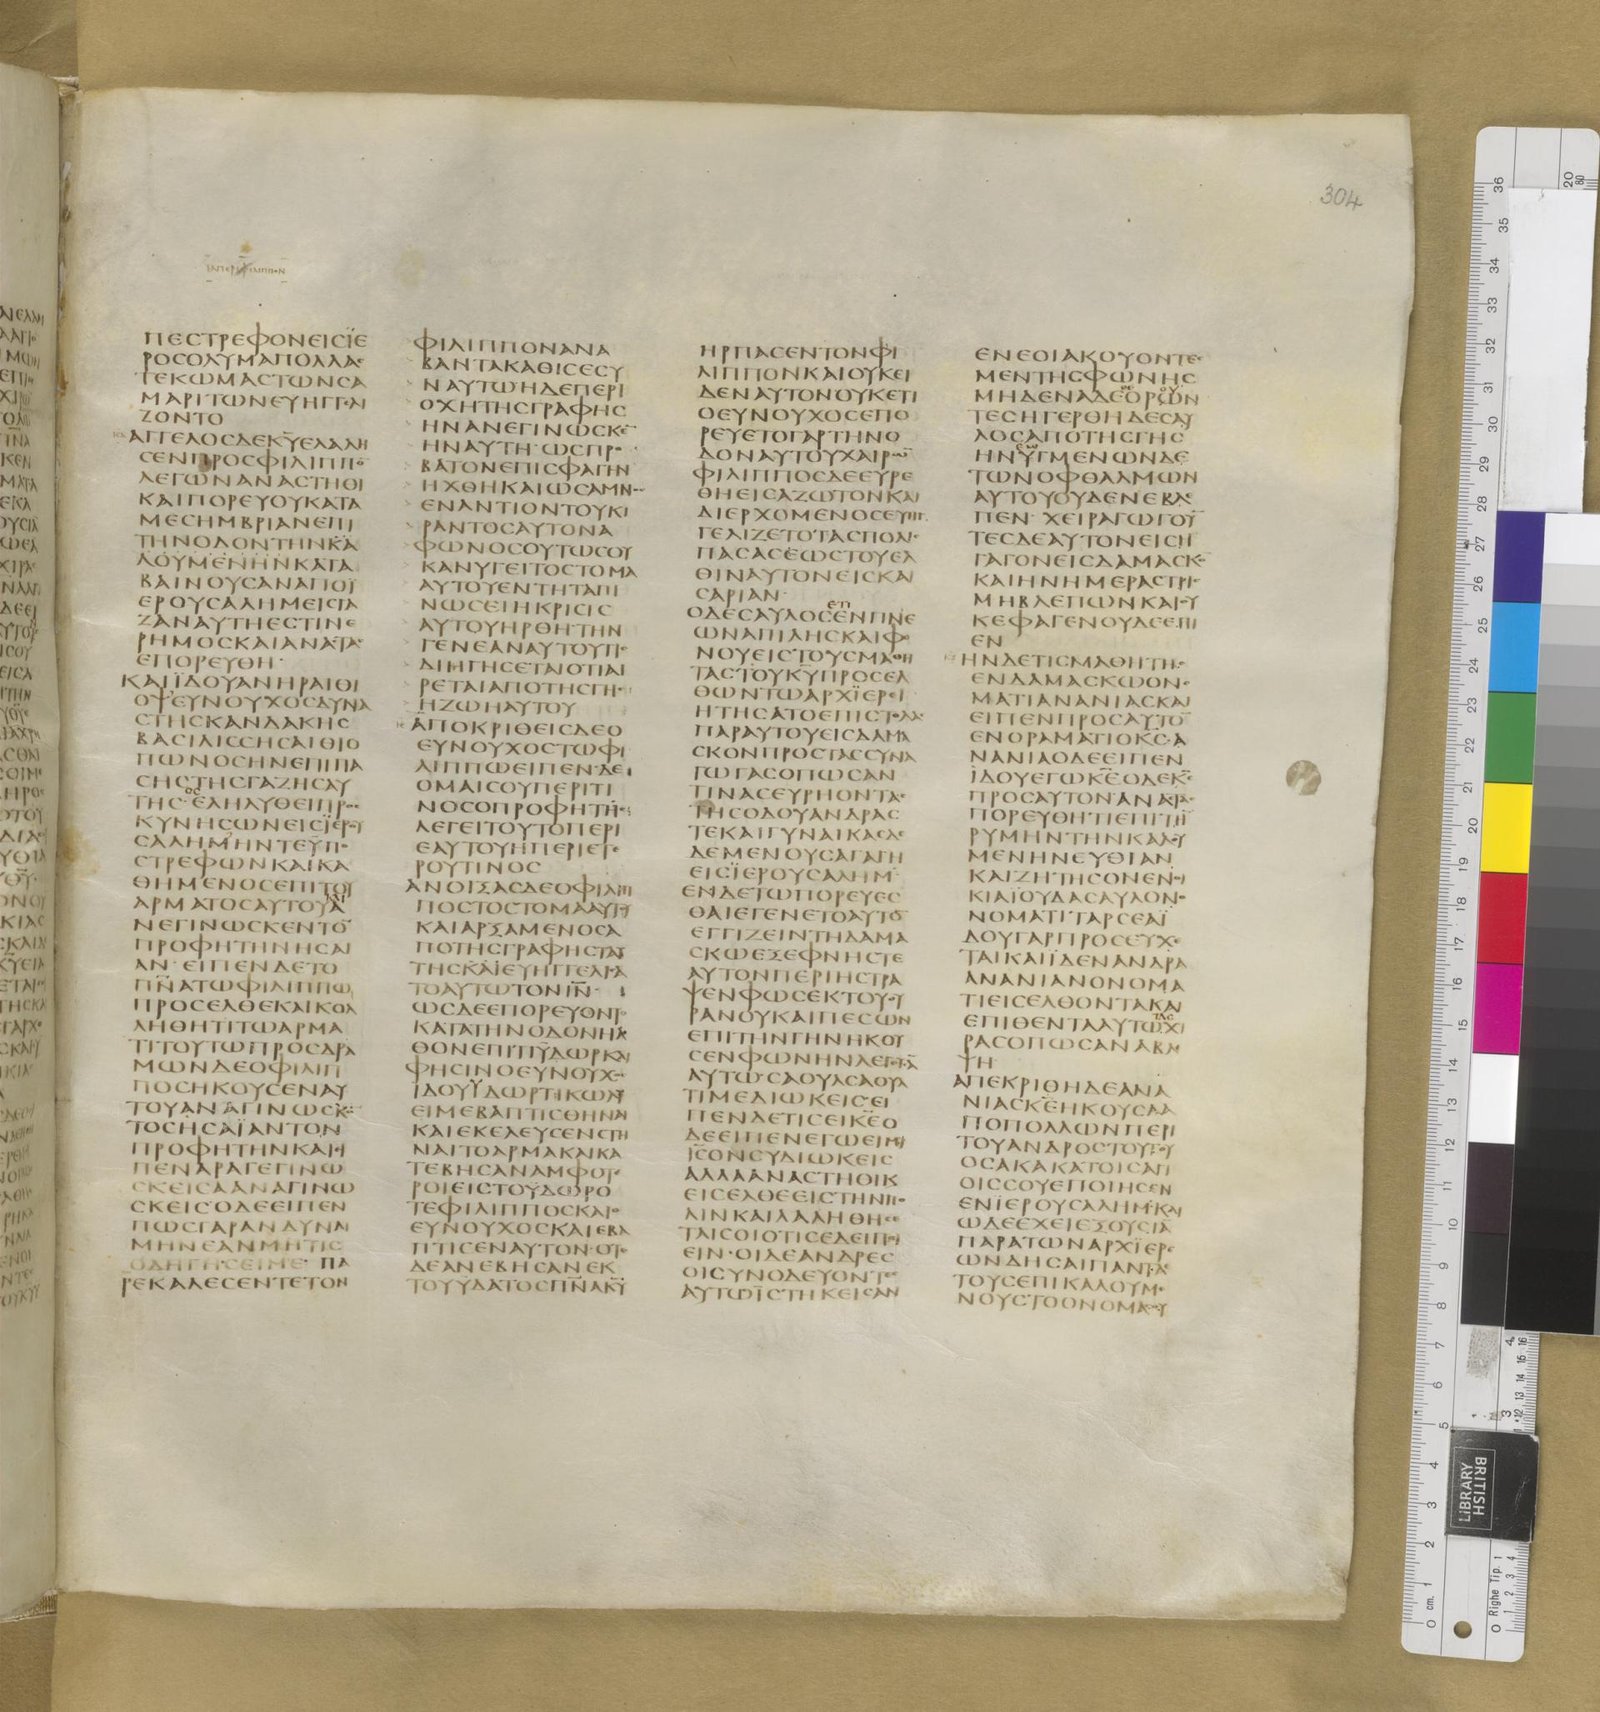 304
ΠΕСΤΡΕΦΟΝΕΙСΪΕ
ΡΟСΟΛΥΜΑΠΟΛΛΑС
ΤΕΚΩΜΑСΤΩΝСΑ
ΜΑΡΙΤΩΝΕΥΗΓΓΕΛΙ
ΖΟΝΤΟ
ΑΓΓΕΛΟСΔΕΚΥΕΛΑΛΗ
СΕΝΠΡΟСΦΙΛΙΠΠΟ
ΛΕΓΩΝΑΝΑСΤΗΘΙ
ΚΑΙΠΟΡΕΥΟΥΚΑΤΑ
ΜΕСΗΜΒΡΙΑΝΕΠΙ
ΤΗΝΟΔΟΝΤΗΝΚΑ
ΛΟΥΜΕΝΗΝΚΑΤΑ
ΒΑΙΝΟΥСΑΝΑΠΟΪ
ΕΡΟΥСΑΛΗΜΕΙСΓΑ
ΖΑΝΑΥΤΗΕСΤΙΝΕ
ΡΗΜΟСΚΑΙΑΝΑСΤΑС
ΕΠΟΡΕΥΘΗ·
ΚΑΙΪΔΟΥΑΝΗΡΑΙΘΙ
ΟΨΕΥΝΟΥΧΟСΔΥΝΑ
СΤΗСΚΑΝΔΑΚΗС
ΒΑСΙΛΙССΗСΑΙΘΙΟ
ΠΩΝΟСΗΝΕΠΙΠΑ
СΗСΤΗСΓΑΖΗСΑΥ
ΤΗС ΕΛΗΛΥΘΕΙΠΡΟС
ΚΥΝΗСΩΝΕΙСΪΕΡΟΥ
СΑΛΗΜΗΝΤΕΥΠΟ
СΤΡΕΦΩΝΚΑΙΚΑ
ΘΗΜΕΝΟСΕΠΙΤΟΥ
ΑΡΜΑΤΟСΑΥΤΟΥΑ
ΝΕΓΙΝΩСΚΕΝΤΟ
ΠΡΟΦΗΤΗΝΗСΑΙ
ΑΝ·ΕΙΠΕΝΔΕΤΟ
ΠΝΑΤΩΦΙΛΙΠΠΩ
ΠΡΟСΕΛΘΕΚΑΙΚΟΛ
ΛΗΘΗΤΙΤΩΑΡΜΑ
ΤΙΤΟΥΤΩΠΡΟСΔΡΑ
ΜΩΝΔΕΟΦΙΛΙΠ
ΠΟСΗΚΟΥСΕΝΑΥ
ΤΟΥΑΝΑΓΙΝΩСΚ
ΤΟСΗСΑΪΑΝΤΟΝ
ΠΡΟΦΗΤΗΝΚΑΙΕΙ
ΠΕΝΑΡΑΓΕΓΙΝΩ
СΚΕΙСΑΑΝΑΓΙΝΩ
СΚΕΙСΟΔΕΕΙΠΕΝ
ΠΩСΓΑΡΑΝΔΥΝΑΙ
ΜΗΝΕΑΝΜΗΤΙС
ΟΔΗΓΗСΕΙΜΕ·ΠΑ
ΡΕΚΑΛΕСΕΝΤΕΤΟΝ
ΦΙΛΙΠΠΟΝΑΝΑ
ΒΑΝΤΑΚΑΘΙСΕСΥ
ΝΑΥΤΩΗΔΕΠΕΡΙ
ΟΧΗΤΗСΓΡΑΦΗС
ΗΝΑΝΕΓΙΝΩСΚΕ
ΗΝΑΥΤΗ·ΩСΠΡΟ
ΒΑΤΟΝΕΠΙСΦΑΓΗΝ
ΗΧΘΗΚΑΙΩСΑΜΝΟС
ΕΝΑΝΤΙΟΝΤΟΥΚΙ
ΡΑΝΤΟСΑΥΤΟΝΑ
ΦΩΝΟСΟΥΤΩСΟΥ
ΚΑΝΥΓΕΙΤΟСΤΟΜΑ
ΑΥΤΟΥΕΝΤΗΤΑΠΙ
ΝΩСΕΙΗΚΡΙСΙС
ΑΥΤΟΥΗΡΘΗΤΗΝ
ΓΕΝΕΑΝΑΥΤΟΥΤΙС
ΔΙΗΓΗСΕΤΑΙΟΤΙΑΙ
ΡΕΤΑΙΑΠΟΤΗСΓΗС
ΗΖΩΗΑΥΤΟΥ
ΑΠΟΚΡΙΘΕΙСΔΕΟ
ΕΥΝΟΥΧΟСΤΩΦΙ
ΛΙΠΠΩΕΙΠΕΝ·ΔΕ
ΟΜΑΙСΟΥΠΕΡΙΤΙ
ΝΟСΟΠΡΟΦΗΤΗС
ΛΕΓΕΙΤΟΥΤΟΠΕΡΙ
ΕΑΥΤΟΥΗΠΕΡΙΕΤΕ
ΡΟΥΤΙΝΟС
ΑΝΟΙΞΑСΔΕΟΦΙΛΙΠ
ΠΟСΤΟСΤΟΜΑΑΥΤΟΥ
ΚΑΙΑΡΞΑΜΕΝΟСΑ
ΠΟΤΗСΓΡΑΦΗСΤΑΥ
ΤΗСΚΑΙΕΥΗΓΓΕΛΙСΑ
ΤΟΑΥΤΩΤΟΝΙΝ·
ΩСΔΕΕΠΟΡΕΥΟΝΤΟ
ΚΑΤΑΤΗΝΟΔΟΝΗΛ
ΘΟΝΕΠΙΤΙΫΔΩΡΚΑΙ
ΦΗСΙΝΟΕΥΝΟΥΧΟС
ΪΔΟΥΫΔΩΡΤΙΚΩΛΥ
ΕΙΜΕΒΑΠΤΙСΘΗΝΑΙ
ΚΑΙΕΚΕΛΕΥСΕΝСΤΗ
ΝΑΙΤΟΑΡΜΑΚΑΙΚΑ
ΤΕΒΗСΑΝΑΜΦΟΤΕ
ΡΟΙΕΙСΤΟΫΔΩΡΟ
ΤΕΦΙΛΙΠΠΟСΚΑΙΟ
ΕΥΝΟΥΧΟСΚΑΙΕΒΑ
ΠΤΙСΕΝΑΥΤΟΝ·ΟΤΕ
ΔΕΑΝΕΒΗСΑΝΕΚ
ΤΟΥΫΔΑΤΟСΠΝΑΚΥ
ΗΡΠΑСΕΝΤΟΝΦΙ
ΛΙΠΠΟΝΚΑΙΟΥΚΕΙ
ΔΕΝΑΥΤΟΝΟΥΚΕΤΙ
ΟΕΥΝΟΥΧΟСΕΠΟ
ΡΕΥΕΤΟΓΑΡΤΗΝΟ
ΔΟΝΑΥΤΟΥΧΑΙΡΩ
ΦΙΛΙΠΠΟСΔΕΕΥΡΕ
ΘΗΕΙСΑΖΩΤΟΝΚΑΙ
ΔΙΕΡΧΟΜΕΝΟСΕΥΗΓ
ΓΕΛΙΖΕΤΟΤΑСΠΟΛΙС
ΠΑСΑСΕΩСΤΟΥΕΛ
ΘΙΝΑΥΤΟΝΕΙСΚΑΙ
СΑΡΙΑΝ·
ΟΔΕСΑΥΛΟСΕΝΠΝΕ
ΩΝΑΠΙΛΗСΚΑΙΦΟ
ΝΟΥΕΙСΤΟΥСΜΑΘΗ
ΤΑСΤΟΥΚΥΠΡΟСΕΛ
ΘΩΝΤΩΑΡΧΪΕΡΕΙ
ΗΤΗСΑΤΟΕΠΙСΤΟΛΑС
ΠΑΡΑΥΤΟΥΕΙСΔΑΜΑ
СΚΟΝΠΡΟСΤΑССΥΝΑ
ΓΩΓΑСΟΠΩСΑΝ
ΤΙΝΑСΕΥΡΗΟΝΤΑС
ΤΗСΟΔΟΥΑΝΔΡΑС
ΤΕΚΑΙΓΥΝΑΙΚΑСΔΕ
ΔΕΜΕΝΟΥСΑΓΑΓΗ
ΕΙСΪΕΡΟΥСΑΛΗΜ
ΕΝΔΕΤΩΠΟΡΕΥΕС
ΘΑΙΕΓΕΝΕΤΟΑΥΤΟ
ΕΓΓΙΖΕΙΝΤΗΔΑΜΑ
СΚΩΕΞΕΦΝΗСΤΕ
ΑΥΤΟΝΠΕΡΙΗСΤΡΑ
ΨΕΝΦΩСΕΚΤΟΥΟΥ
ΡΑΝΟΥΚΑΙΠΕСΩΝ
ΕΠΙΤΗΝΓΗΝΗΚΟΥ
СΕΝΦΩΝΗΝΛΕΓΟΥСΑ
ΑΥΤΩ·СΑΟΥΛСΑΟΥΛ
ΤΙΜΕΔΙΩΚΕΙС·ΕΙ
ΠΕΝΔΕΤΙСΕΙΚΕΟ
ΔΕΕΙΠΕΝΕΓΩΕΙΜΙ
ΙСΟΝСΥΔΙΩΚΕΙС
ΑΛΛΑΑΝΑСΤΗΘΙΚ
ΕΙСΕΛΘΕΕΙСΤΗΝΠΟ
ΛΙΝΚΑΙΛΑΛΗΘΗСΕ
ΤΑΙСΟΙΟΤΙСΕΔΕΙΠΟΙ
ΕΙΝ·ΟΙΔΕΑΝΔΡΕС
ΟΙСΥΝΟΔΕΥΟΝΤΕС
ΑΥΤΩΪСΤΗΚΕΙСΑΝ
ΕΝΕΟΙΑΚΟΥΟΝΤΕС
ΜΕΝΤΗСΦΩΝΗС
ΜΗΔΕΝΑΔΕΟΡΩΝ
ΤΕСΗΓΕΡΘΗΔΕСΑΥ
ΛΟСΑΠΟΤΗСΓΗС
ΗΝΥΓΜΕΝΩΝΔΕ
ΤΩΝΟΦΘΑΛΜΩΝ
ΑΥΤΟΥΟΥΔΕΝΕΒΛΕ
ΠΕΝ·ΧΕΙΡΑΓΩΓΟΥ
ΤΕСΔΕΑΥΤΟΝΕΙСΗ
ΓΑΓΟΝΕΙСΔΑΜΑСΚΟ
ΚΑΙΗΝΗΜΕΡΑСΤΡΙС
ΜΗΒΛΕΠΩΝΚΑΙΟΥ
ΚΕΦΑΓΕΝΟΥΔΕΕΠΙ
ΕΝ
ΗΝΔΕΤΙСΜΑΘΗΤΗС
ΕΝΔΑΜΑСΚΩΟΝΟ
ΜΑΤΙΑΝΑΝΙΑСΚΑΙ
ΕΙΠΕΝΠΡΟСΑΥΤΟ
ΕΝΟΡΑΜΑΤΙΟΚС·Α
ΝΑΝΙΑΟΔΕΕΙΠΕΝ
ΪΔΟΥΕΓΩΚΕΟΔΕΚС
ΠΡΟСΑΥΤΟΝΑΝΑСΤΑС
ΠΟΡΕΥΘΗΤΙΕΠΙΤΗ
ΡΥΜΗΝΤΗΝΚΑΛΟΥ
ΜΕΝΗΝΕΥΘΙΑΝ
ΚΑΙΖΗΤΗСΟΝΕΝΟΙ
ΚΙΑΪΟΥΔΑСΑΥΛΟΝΟ
ΝΟΜΑΤΙΤΑΡСΕΑΪ
ΔΟΥΓΑΡΠΡΟСΕΥΧΕ
ΤΑΙΚΑΙΪΔΕΝΑΝΔΡΑ
ΑΝΑΝΙΑΝΟΝΟΜΑ
ΤΙΕΙСΕΛΘΟΝΤΑΚΑΙ
ΕΠΙΘΕΝΤΑΑΥΤΩΧΙ
ΡΑСΟΠΩСΑΝΑΒΛΕ
ΨΗ·
ΑΠΕΚΡΙΘΗΔΕΑΝΑ
ΝΙΑСΚΕΗΚΟΥСΑΑ
ΠΟΠΟΛΛΩΝΠΕΡΙ
ΤΟΥΑΝΔΡΟСΤΟΥΤΟΥ
ΟСΑΚΑΚΑΤΟΙСΑΓΙ
ΟΙССΟΥΕΠΟΙΗСΕΝ
ΕΝΪΕΡΟΥСΑΛΗΜ·ΚΑΙ
ΩΔΕΕΧΕΙΕΞΟΥСΙΑ
ΠΑΡΑΤΩΝΑΡΧΪΕΡΕ
ΩΝΔΗСΑΙΠΑΝΤΑС
ΤΟΥСΕΠΙΚΑΛΟΥΜΕ
ΝΟΥСΤΟΟΝΟΜΑСΟΥ
BRITISH
LIBRARY